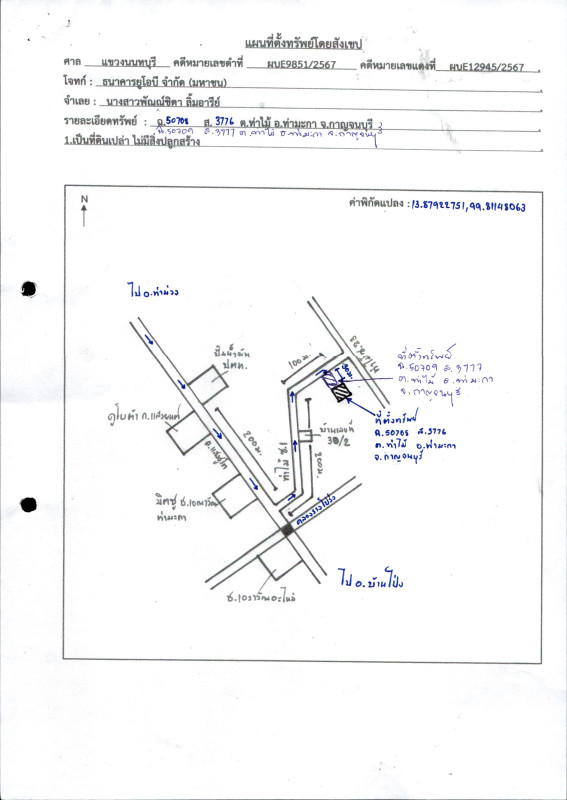 แผนที่ตั้งทรัพย์โดยสังเขป
ศาล แขวงนนทบุรี คดีหมายเลขดำที่ ผบE9851/2567 คดีหมายเลขแดงที่ ผบE12945/2567
โจทก์ : ธนาคารยูโอบี จำกัด (มหาชน)
จำเลย : นางสาวพัณณ์ชิตา ลิ้มอารีย์
รายละเอียดทรัพย์ : ฉ.50708 ส. 3776 ต.ท่าไม้ อ.ท่ามะกา จ.กาญจนบุรี
ฉ.50709 ส.3777 ต.ท่าไม้ อ.ท่ามะกา จ.กาญจนบุรี
1.เป็นที่ดินเปล่า ไม่มีสิ่งปลูกสร้าง
N
ค่าพิกัดแปลง : 13.87922751,99.81148063
ไป อ.ท่าม่วง
ปั๊มน้ำมัน
ปตท.
100 ม.
50 ม.
ที่ตั้งทรัพย์
ฉ.50709 ส.3777
ต.ท่าไม้ อ.ท่ามะกา
จ.กาญจนบุรี
คูโบต้า
ถ.แสงชูโต
200 ม.
ท่าไม้ ซ.1
บ้านเลขที่
30/2
200 ม.
ที่ตั้งทรัพย์
ฉ.50708 ส.3776
ต.ท่าไม้ อ.ท่ามะกา
จ.กาญจนบุรี
มิตซู
ท่ามะกา
ไป อ.บ้านโป่ง